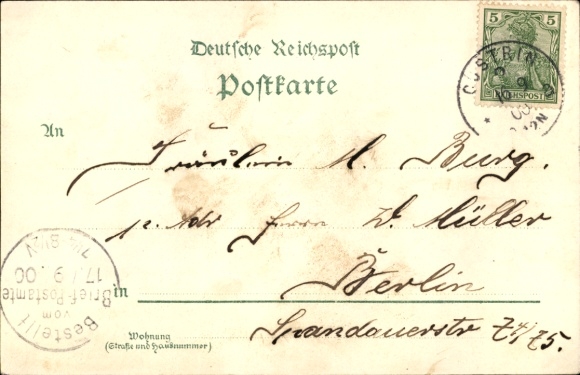 Deutsche Reichspost
Postkarte
5 5
REICHSPOST
CÜSTRIN
An
Fräulein M. Burg.
Adr Herrn W. Müller
in Berlin
Wohnung
(Straße und Hausnummer)
Spandauerstr 74/75.
Bestellt
vom
Brief-Postamte
17/9.00